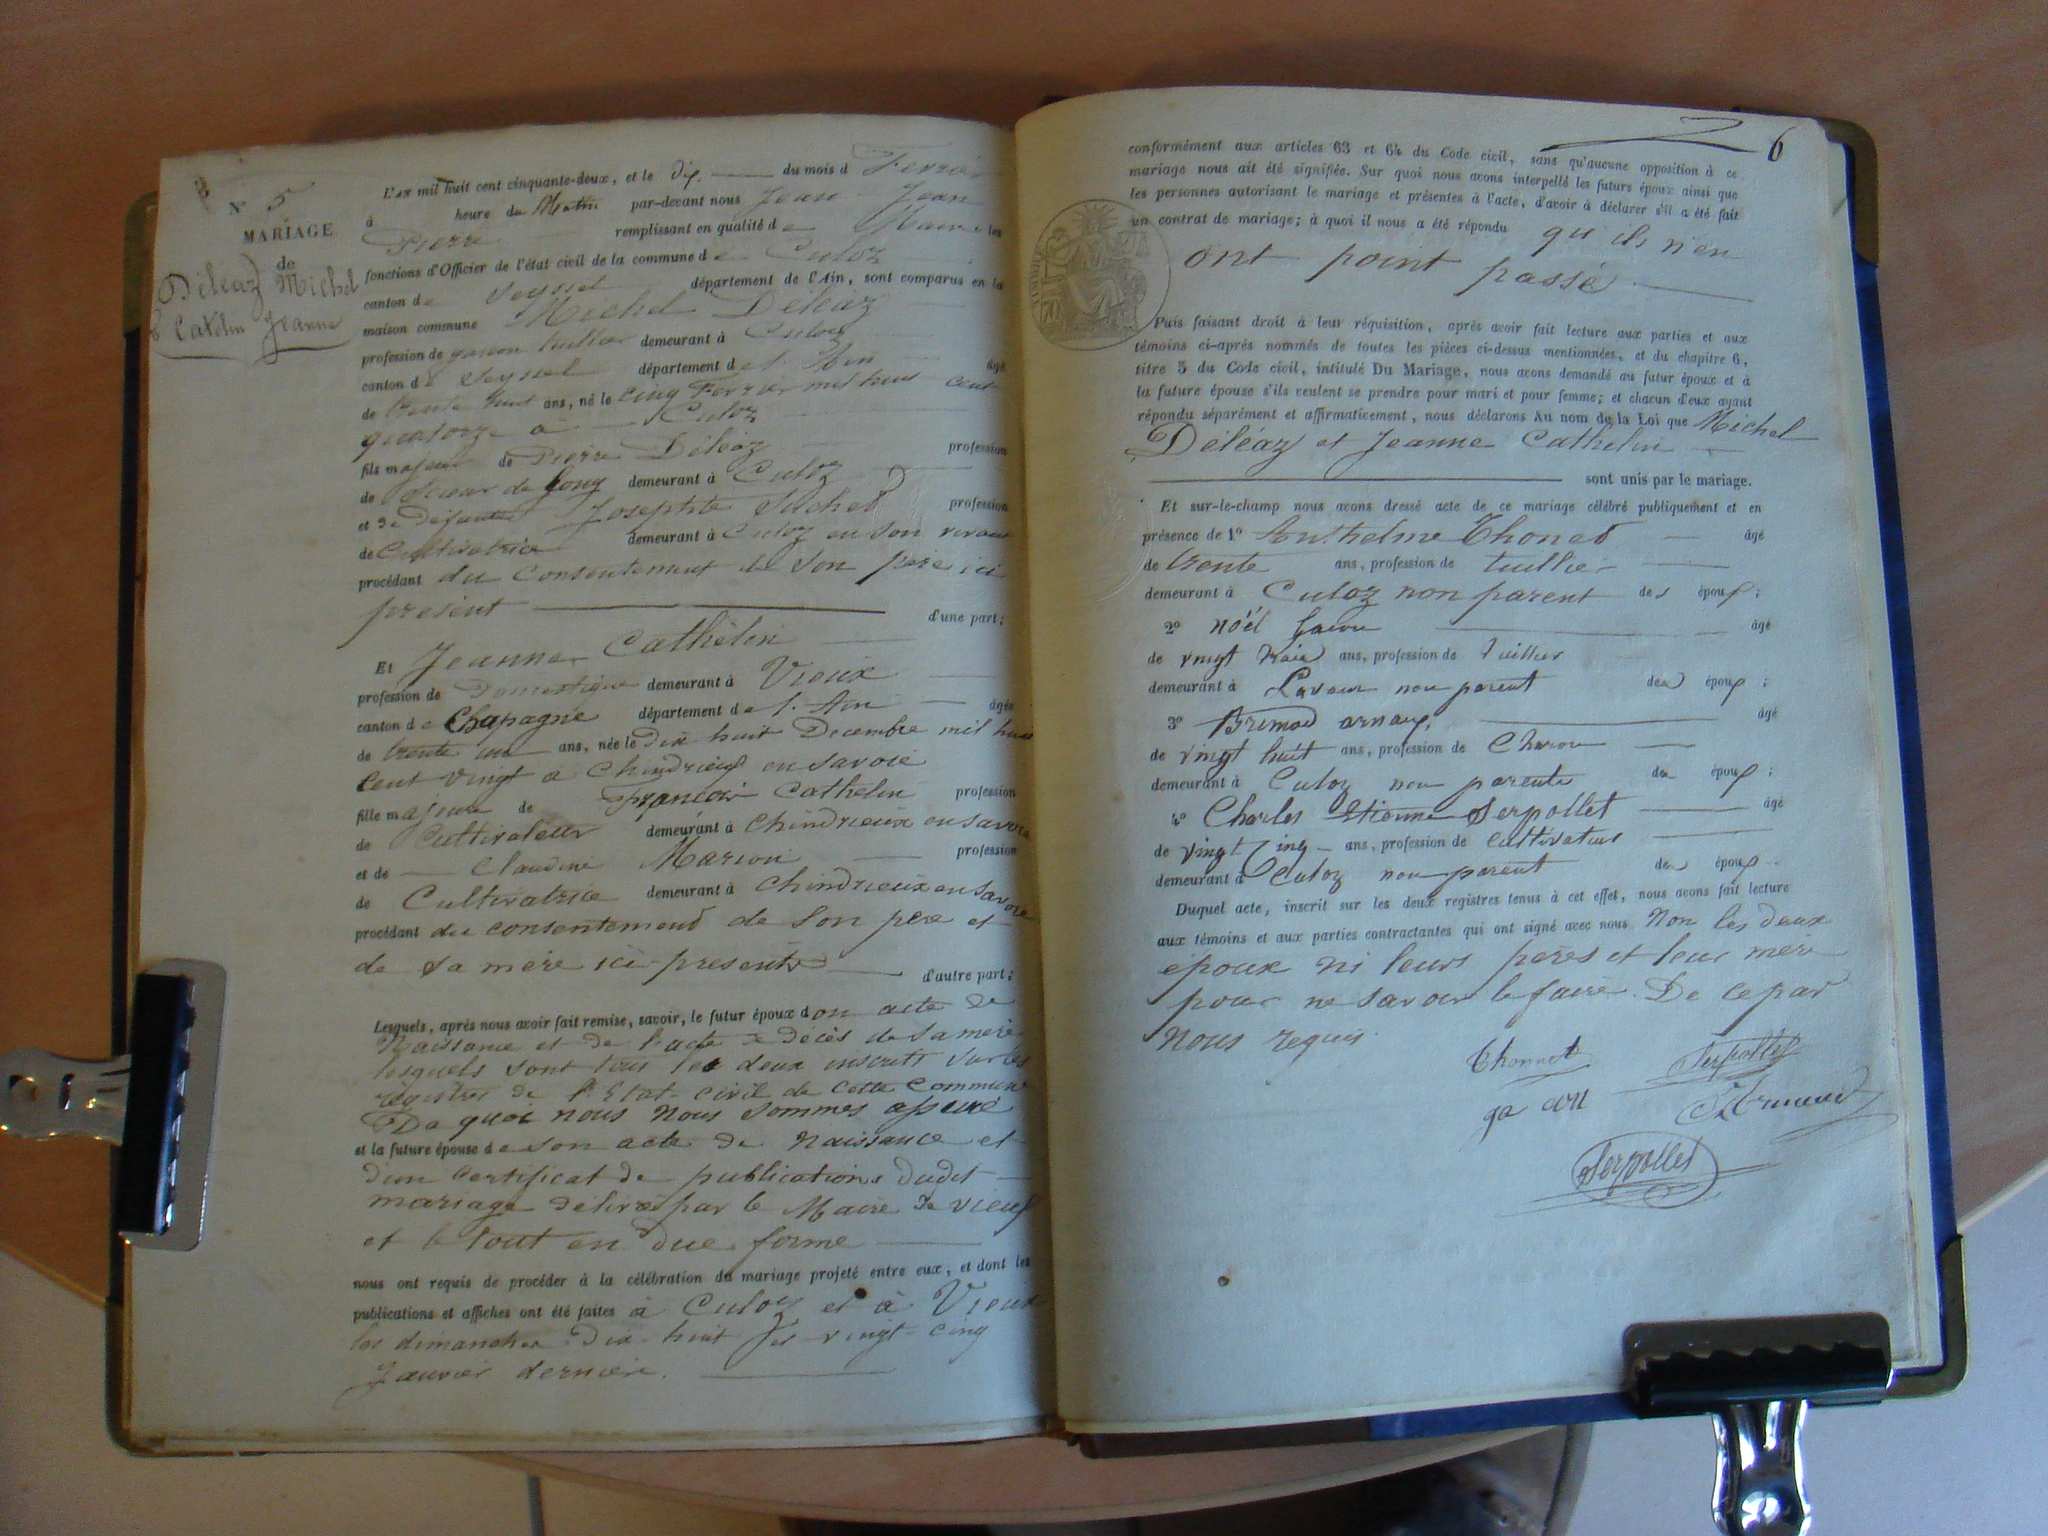 N° 5
MARIAGE
de
Déléaz Michel
& Catelin Jeanne
L'AN mil huit cent cinquante-deux, et le dix du mois d Ferrier
à heure du Matin par-devant nous Jean Jean
Pierre remplissant en qualité de Maire les
fonctions d'Officier de l'état civil de la commune de Culoz
canton de Seyssel département de l'Ain, sont comparus en la
maison commune Michel Deléaz
profession de garçon tuillier demeurant à Culoz
canton de Seyssel département de l'Ain âgé
de trente huit ans, né le cinq Ferrier mil huit cent
quatorze à Culoz
fils majeur de Pierre Déléaz profession
de Scieur de long demeurant à Culoz
et de défunte Josephte profession
de Cultivatrice demeurant à Culoz en son vivant
procédant du consentement de son père ici
présent d'une part;
Et Jeanne Cathelin
profession de Domestique demeurant à Vieux
canton de Chapagne département de l'Ain âgée
de trente un ans, née le Dix huit Decembre mil huit
cent vingt à Chindrieux en Savoie
fille majeure de François Cathelin profession
de Cultivateur demeurant à Chindrieux en Savoie
et de Claudine Marion profession
de Cultivatrice demeurant à Chindrieux en Savoie
procédant du consentement de son père et
de sa mère ici présents d'autre part;
Lesquels, après nous avoir fait remise, savoir, le futur époux d son acte de
Naissance et de l'acte de décès de sa mère
lesquels sont tous les deux inscrits sur les
régistres de l'Etat-civil de cette Commune
De quoi nous nous sommes assuré
et la future épouse de son acte de Naissance et
d'un certificat de publications dudit
mariage délivré par le Maire de vieux
et le tout en due forme
nous ont requis de procéder à la célébration du mariage projeté entre eux, et dont les
publications et affiches ont été faites à Culoz et à Vieux
les dimanches Dix-huit et vingt-cinq
Janvier dernier.
6
conformément aux articles 63 et 64 du Code civil, sans qu'aucune opposition à ce
mariage nous ait été signifiée. Sur quoi nous avons interpellé les futurs époux ainsi que
les personnes autorisant le mariage et présentes à l'acte, d'avoir à déclarer s'il a été fait
un contrat de mariage; à quoi il nous a été répondu qu'ils n'en
ont point passé
Puis faisant droit à leur réquisition, après avoir fait lecture aux parties et aux
témoins ci-après nommés de toutes les pièces ci-dessus mentionnées, et du chapitre 6,
titre 5 du Code civil, intitulé Du Mariage, nous avons demandé au futur époux et à
la future épouse s'ils veulent se prendre pour mari et pour femme; et chacun d'eux ayant
répondu séparément et affirmativement, nous déclarons Au nom de la Loi que Michel
Déléaz et Jeanne Cathelin
sont unis par le mariage.
Et sur-le-champ nous avons dressé acte de ce mariage célébré publiquement et en
présence de 1° Anthelme Thonet âgé
de trente ans, profession de tuillier
demeurant à Culoz non parent des époux;
2° Noël âgé
de vingt trois ans, profession de tuillier
demeurant à Lavour non parent des époux;
3° Brimod arnaux âgé
de vingt huit ans, profession de Charon
demeurant à Culoz non parente des époux;
4° Charles Etienne Serpollet âgé
de vingt Cinq ans, profession de cultivateur
demeurant à Culoz non parent des époux.
Duquel acte, inscrit sur les deux registres tenus à cet effet, nous avons fait lecture
aux témoins et aux parties contractantes qui ont signé avec nous Non les deux
époux ni leurs pères et leur mère
pour ne savoir le faire. De ce par
Nous requis.
Thonnet Serpollet
Serpollet